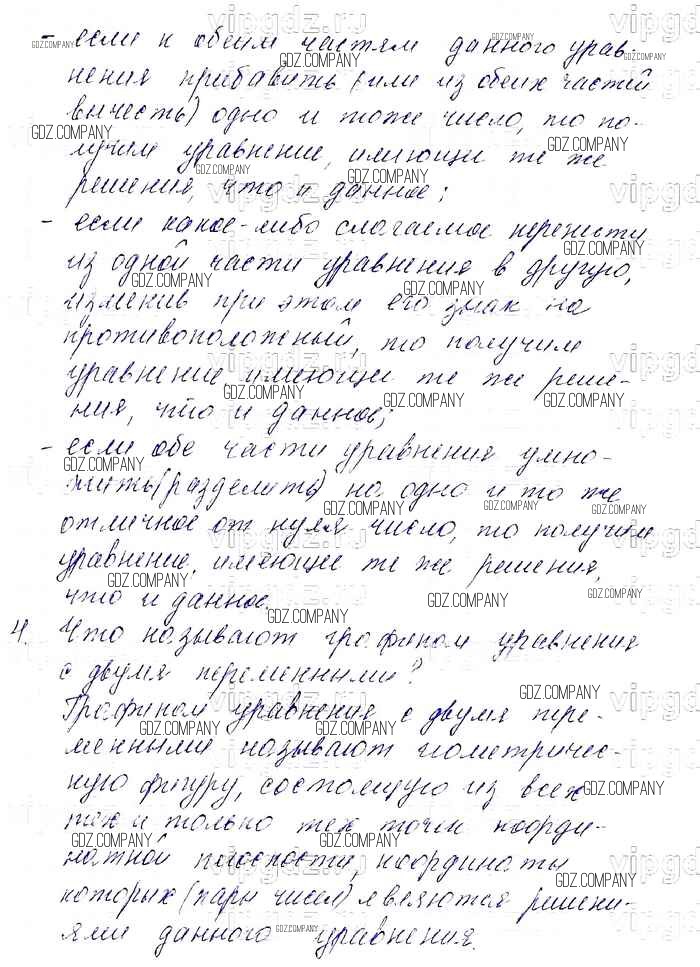 - если к обеим частям данного урав-
нения прибавить (или из обеих частей
вычесть) одно и тоже число, то по-
лучим уравнение, имеющи те же
решения, что и данное;
- если какое-либо слагаемое перенести
из одной части уравнения в другую,
изменив при этом его знак на
противоположеный, то получим
уравнение, имеющи те же реше-
ния, что и данное;
- если обе части уравнения умно-
жить (разделить) на одно и то же
отличное от нуля число, то получим
уравнение, имеющее те же решения,
что и данное.
4. Что называют графиком уравнения
с двумя переменными?
Графиком уравнения с двумя пере-
менными называют геометричес-
кую фигуру, состоящую из всех
тех и только тех точек коорди-
натной плоскости, координаты
которых (пары чисел) являются решени-
ями данного уравнения.
GDZ.COMPANY
vipgdz.ru